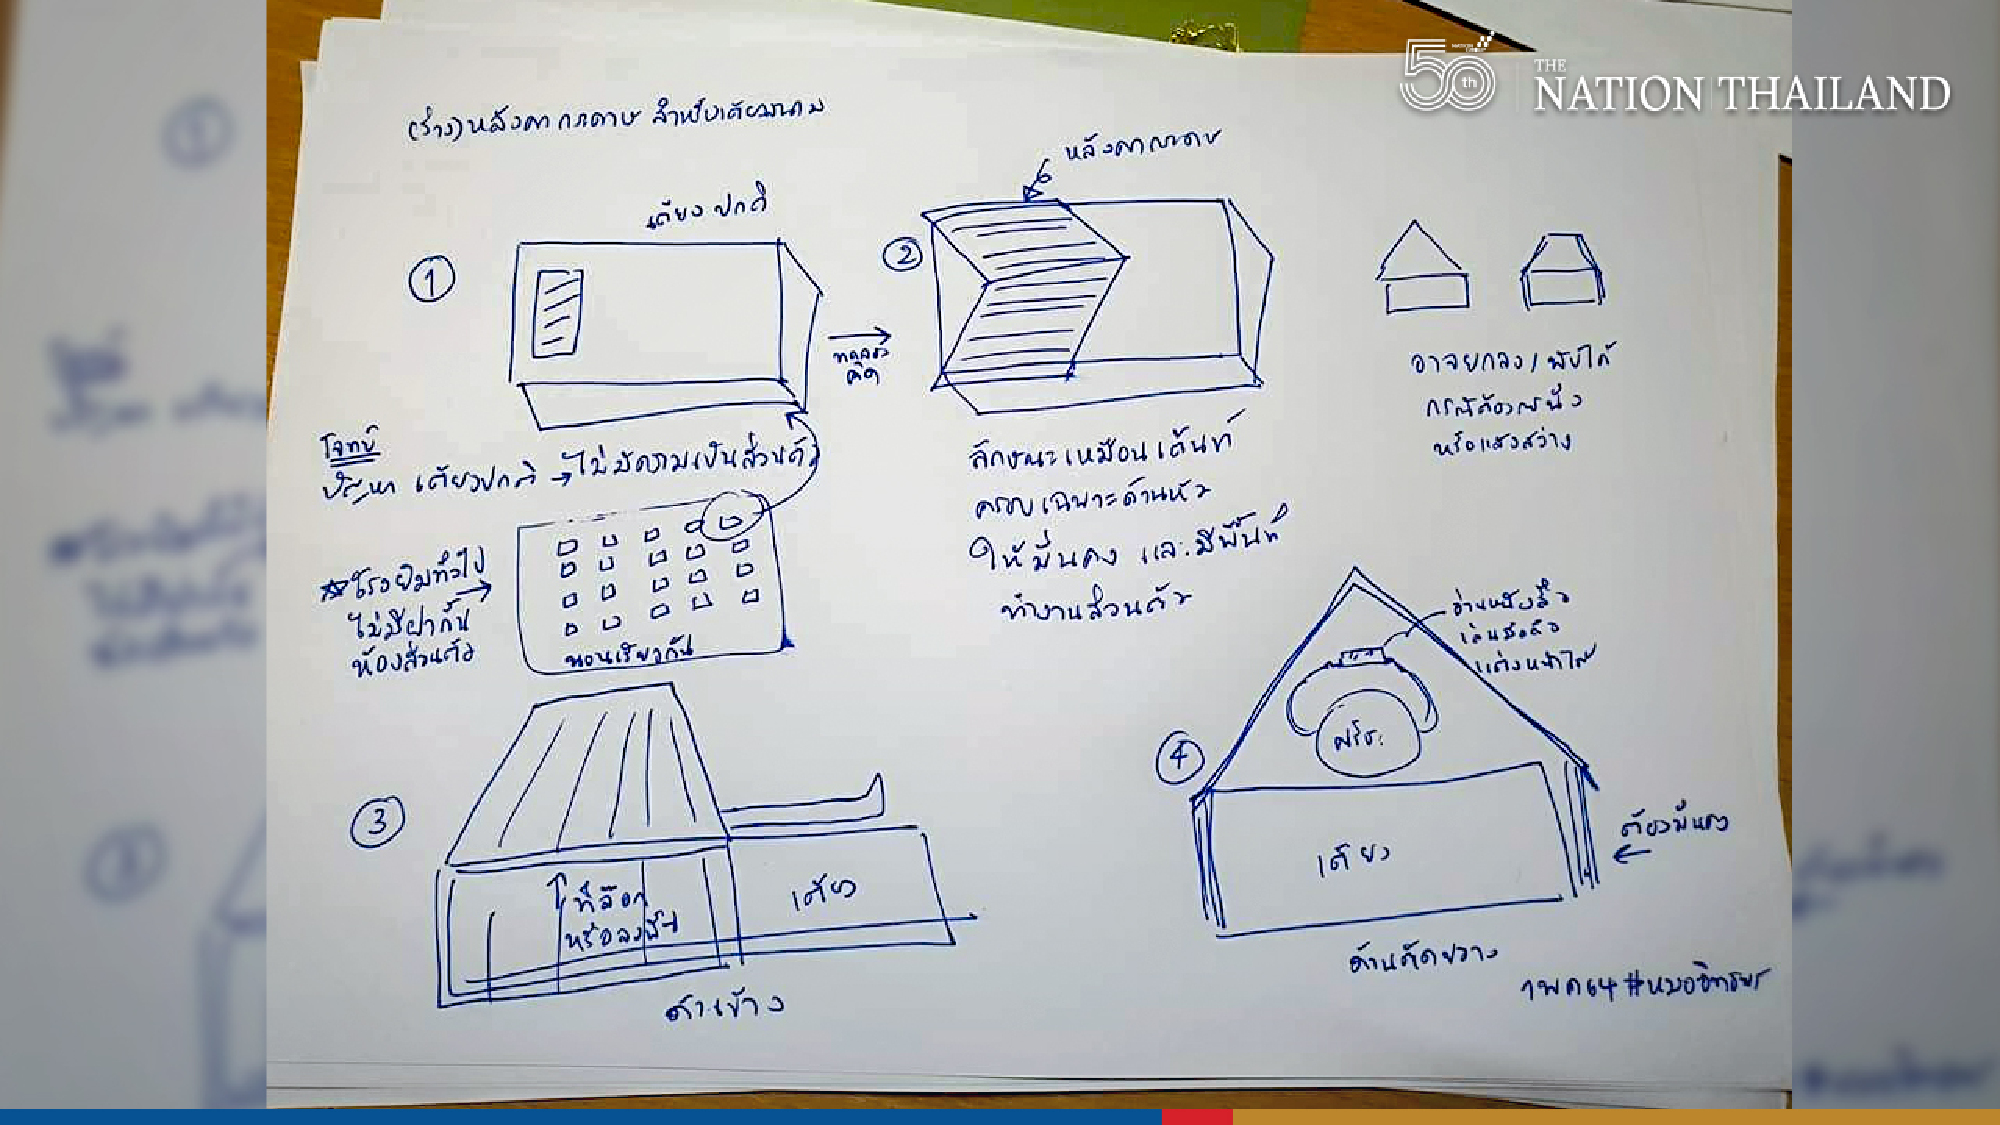 50th
THE
NATION THAILAND
(ร่าง) หลังคากระดาษ สำหรับเตียงสนาม
เตียงปกติ
1
ทดลอง
คิด
หลังคากระดาษ
2
อาจยกลง / พับได้
กรณีต้องการนั่ง
หรือแสงสว่าง
โจทย์
ปัญหา เตียงปกติ → ไม่มีความเป็นส่วนตัว
โรงยิมทั่วไป
ไม่มีฝากั้น
ห้องส่วนตัว
นอนเรียงกัน
ลักษณะเหมือนเต็นท์
ครอบเฉพาะด้านหัว
ให้มั่นคง และมีพื้นที่
ทำงานส่วนตัว
3
ที่ล๊อก
หรือลงพื้น
เตียง
ด้านข้าง
4
อ่านหนังสือ
เล่นมือถือ
แต่งหน้าได้
ศรีษะ
เตียง
ต้องมั่นคง
ด้านตัดขวาง
1 พค 64 #หมออิทธิพร